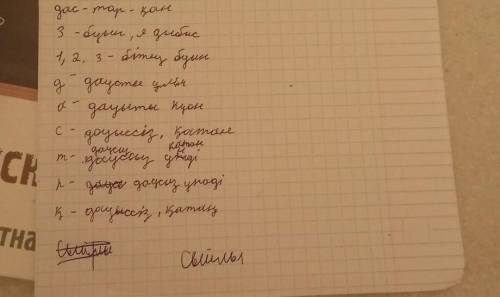 дас-тар-қан
3 - буын, 9 дыбыс
1, 2, 3 - бітеу буын
д - дауыссыз ұяң
а - дауысты жуан
с - дауыссыз, қатаң
дауссыз қатаң
т -
р - дауссыз үнді
қ - дауыссыз, қатаң
Сыйлы